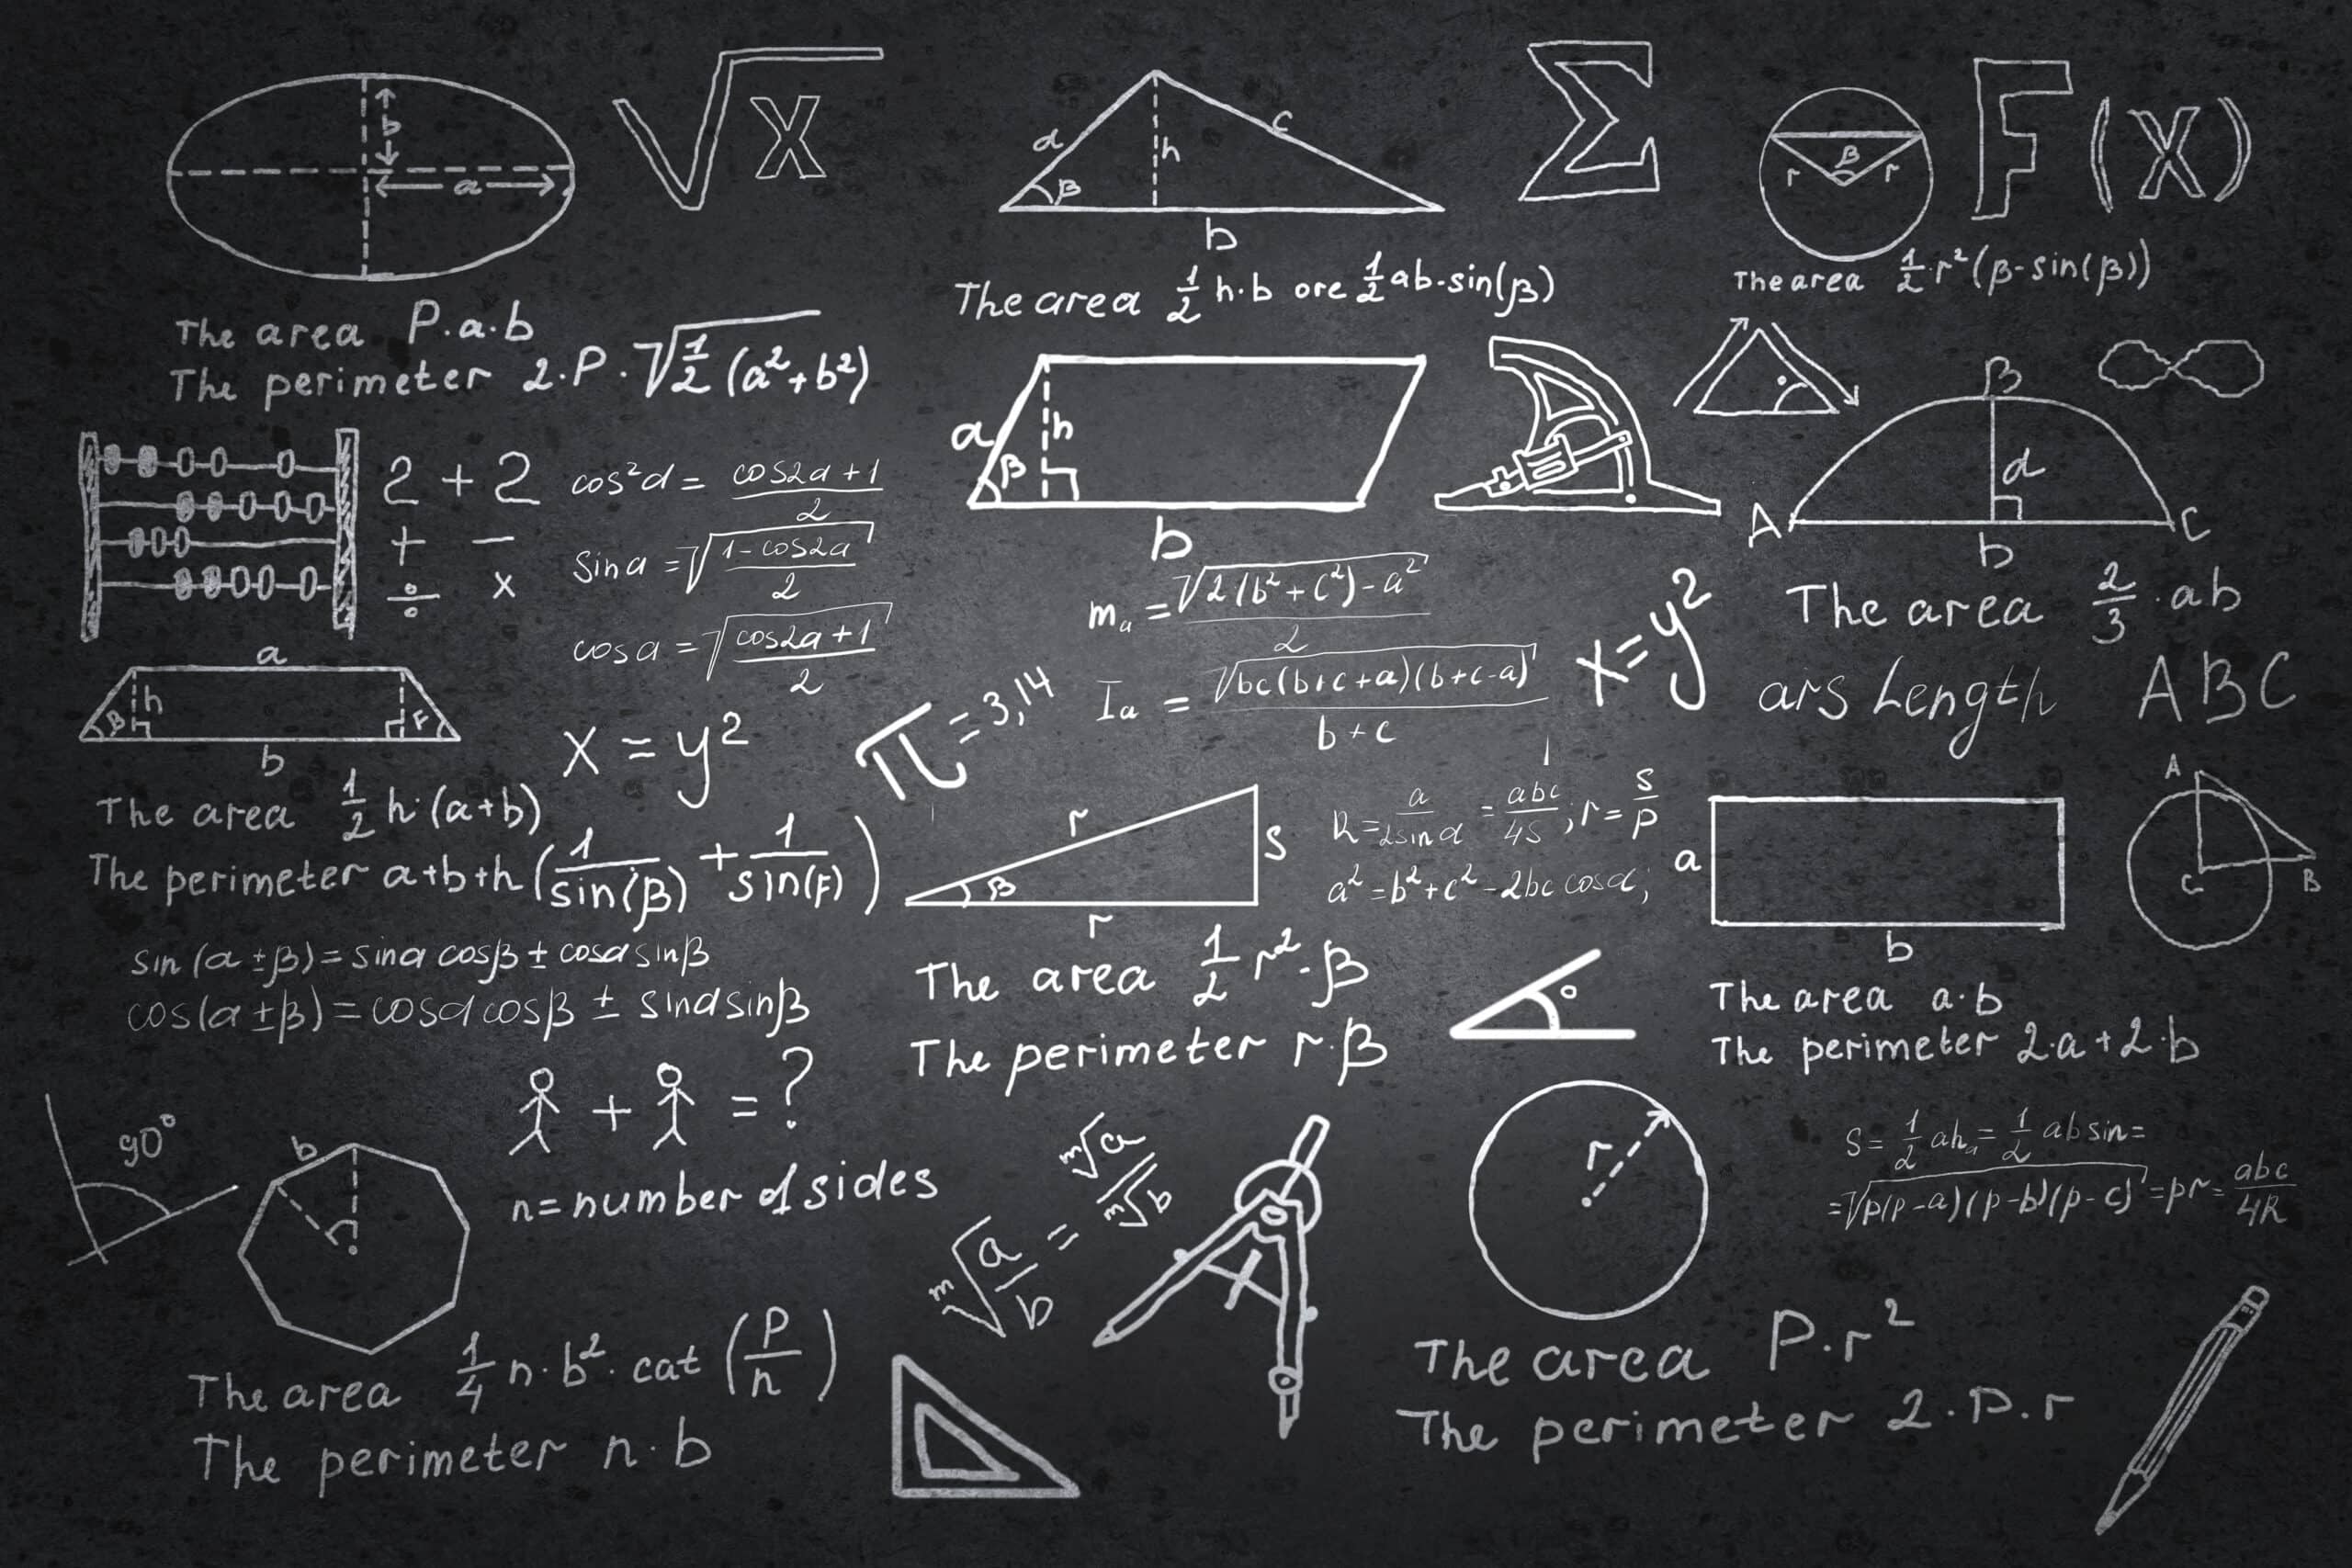 b
a
The area P.a.b
The perimeter 2.P.√1/2 (a²+b²)
√x
a h c
β
b
The area 1/2 h·b ore 1/2 ab·sin(β)
Σ
β
r r
F(x)
The area 1/2·r²(β-sin(β))
2 + 2
+ −
÷ x
cos²α = cos2a+1/2
sina = √1-cos2a/2
cosa = √cos2a+1/2
a h
β
b
B
d
A C
b
The area 2/3·ab
ars Length ABC
mₐ = √2(b²+c²)-a²/2
Iₐ = √bc(b+c+a)(b+c-a)/b+c
x=y²
a
h
β F
b
The area 1/2 h·(a+b)
The perimeter a+b+h(1/sin(β) + 1/sin(F))
x = y²
π=3,14
r S
β
r
The area 1/2 r²·β
The perimeter r·β
R=a/2sinα = abc/4S; r=S/P
a²=b²+c²-2bc cosα;
a
b
The area a·b
The perimeter 2·a+2·b
A
C B
sin(α±β)=sinα cosβ±cosα sinβ
cos(α±β)=cosα cosβ ± sinα sinβ
+ = ?
n=number of sides
90°
b
The area 1/4 n·b²·cat (P/n)
The perimeter n·b
ᵐ√a/b = ᵐ√a/ᵐ√b
r
The area P·r²
The perimeter 2·P.r
S= 1/2 ahₐ= 1/2 ab sin=
=√p(p-a)(p-b)(p-c)=pr=abc/4R